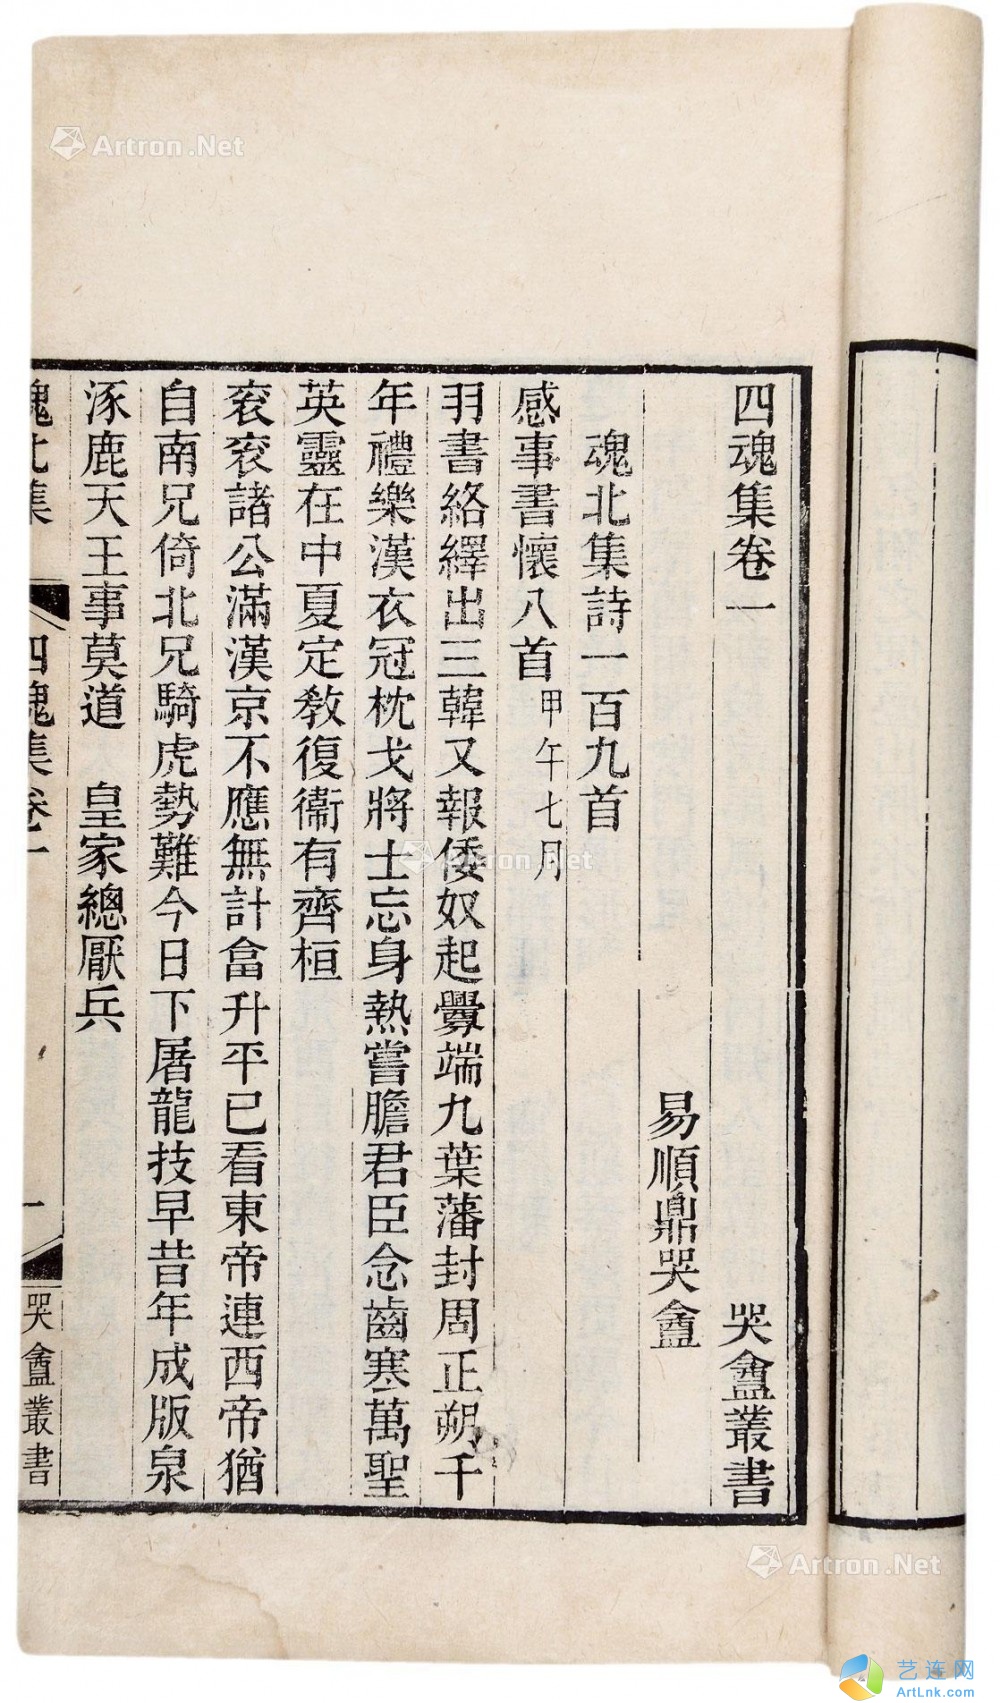 四魂集卷一 哭盦叢書
易順鼎哭盦
魂北集詩一百九首
感事書懷八首甲午七月
羽書絡繹出三韓又報倭奴起釁端九葉藩封周正朔千
年禮樂漢衣冠枕戈將士忘身熱嘗膽君臣念齒寒萬聖
英靈在中夏定教復衞有齊桓
袞袞諸公滿漢京不應無計畣升平已看東帝連西帝猶
自南兄倚北兄騎虎勢難今日下屠龍技早昔年成版泉
涿鹿天王事莫道 皇家總厭兵
魂北集 四魂集卷一 一 哭盦叢書
Artron.Net
Artron.Net
Artron.Net
艺连网
ArtLnk.com